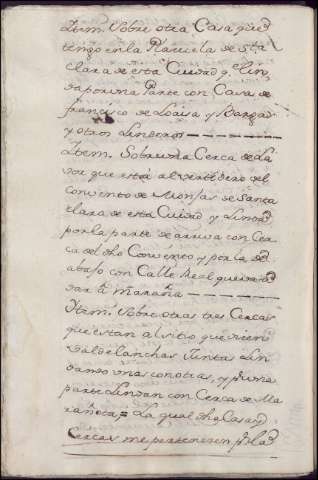 Item. Sobre otra Casa que
tengo en la Plazuela de Sta
Clara de esta Ciudad q.e lin
da por una Parte con Casas de
francisco de Loaisa y Bargas
y otros Linderos
Item. Sobre una Cerca de La
vor que esta al vertedero del
Convento de Monjas de Santa
Clara de esta Ciudad y Linda
por la parte de arriva con Cer
ca del dho Convento y por la de
abajo con Calle Real que va a
dar a marañа
Ytem. Sobre otras tres Cercas
que estan al sitio que dicen
Valdelanchas Juntas Lin
dando unas con otras, y por una
parte Lindan con Cerca de Ma
rañeta = La qual dha Casa y
Cercas me pertenecen